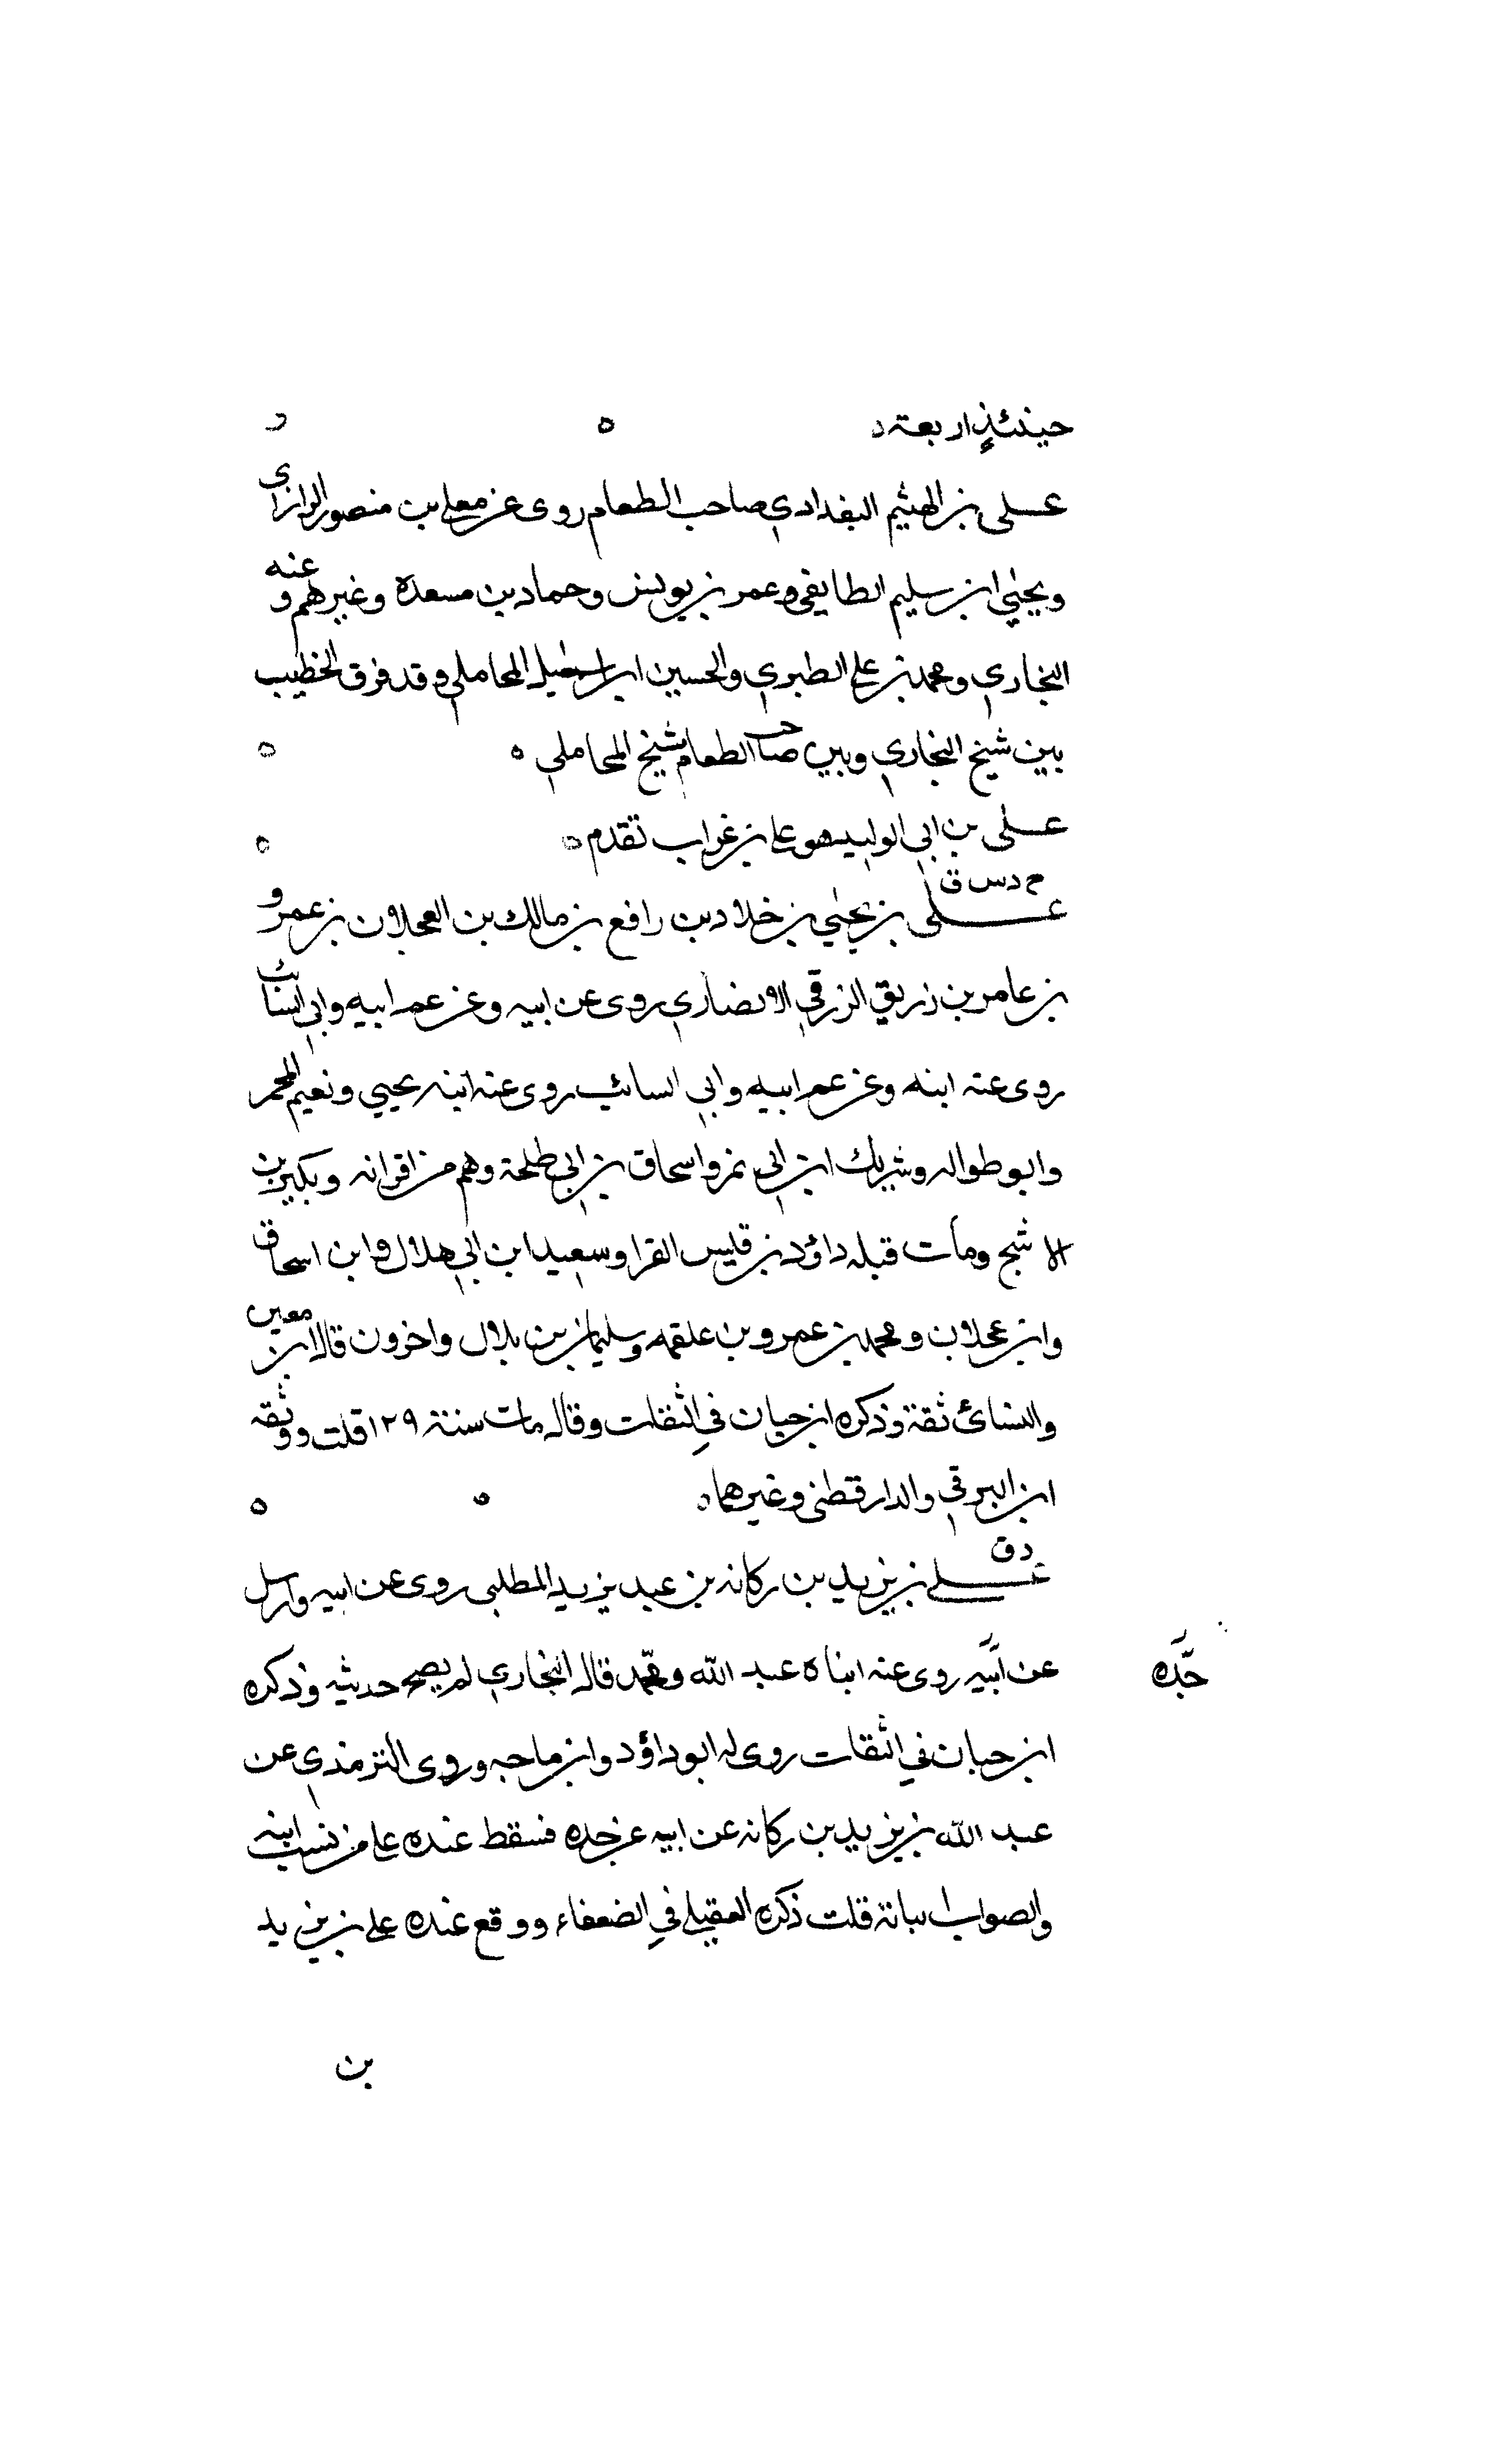 حينئذٍ اربعة
على بن الهيثم البغدادي صاحب الطعام روى عن معلى بن منصور الرازى
ويحيى ابن سليم الطايفي وعمر بن يونس وحماد بن مسعدة وغيرهم وعنه
البخاري ومحمد بن علي الطبري والحسين ابن اسمعيل المحاملي وقد فرق الخطيب
بين شيخ البخاري وبين صاحب الطعام شيخ المحاملي ه
على بن ابي الوليد هو علي بن غراب تقدم ه
م د س ق
على بن يحيى بن خلاد بن رافع بن مالك بن العجلان بن عمرو
بن عامر بن زريق الزرقي الانصاري روى عن ابيه وعن عم ابيه وابي السائب
روى عنه ابنه وعن عم ابيه وابي السائب روى عنه ابنه يحيي ونعيم المجمر
وابو طواله وشريك ابن ابي نمر واسحاق بن ابي طلحة وهم من اقرانه وبكير بن
الاشج ومات قبله داؤد بن قليس الفرا وسعيد ابن ابي هلال وابن اسحاق
وابن عجلان ومحمد بن عمرو بن علقمه وسليمان بن بلال واخرون قال ابن معين
والنسائ ثقة وذكره ابن حبان في الثقات وقال مات سنة ١٢٩ قلت ووثقه
ابن البرقي والدارقطني وغيرهما ه
د ق
علي بن يزيد بن ركانه بن عبد يزيد المطلبي روى عن ابيه وارسل
عن ابيه روى عنه ابناه عبد الله ومحمد قال البخاري لم يصح حديثه وذكره
جده
ابن حبان في الثقات روى له ابو داؤد وابن ماجه وروى الترمذي عن
عبد الله بن يزيد بن ركانه عن ابيه عن جده فسقط عنده علي من نسب ابنه
والصواب اثباتة قلت ذكره العقيلي في الضعفاء ووقع عنده علي بن يزيد
بن